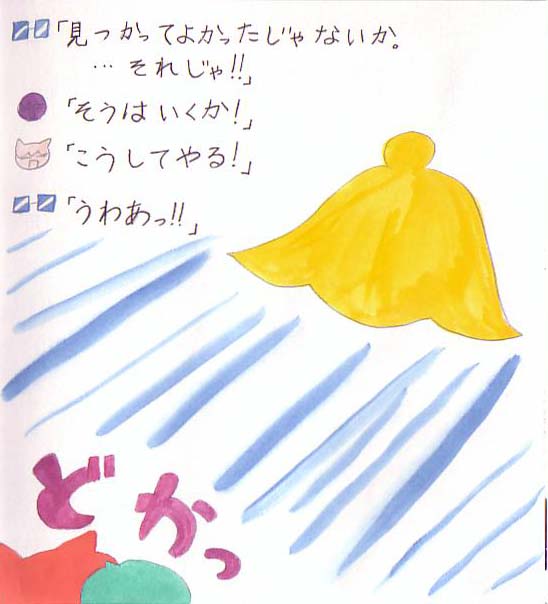 「見つかってよかったじゃないか。
…それじゃ!!」
「そうはいくか!」
「こうしてやる!」
「うわあっ!!」
どかっ